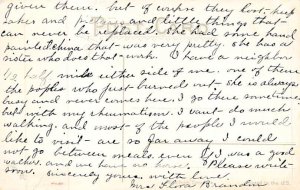 given there. but of course they lost keep
sakes and pictures and little things that
can never be replaced. She had some hand
painted china that was very pretty. she has a
sister who does that work. I have a neighbor
1/2 half mile either side of me. one of them
the people who just burned out. she is always
busy and never comes here. I go there sometimes
but with my rheumatism. I cant do much
walking. and most of the people I would
like to visit are so far away I could
not go between meals even if I was a good
walker. and we have no horse. Please write
soon. Sincerely yours, with love.
Mrs Flora Brandon